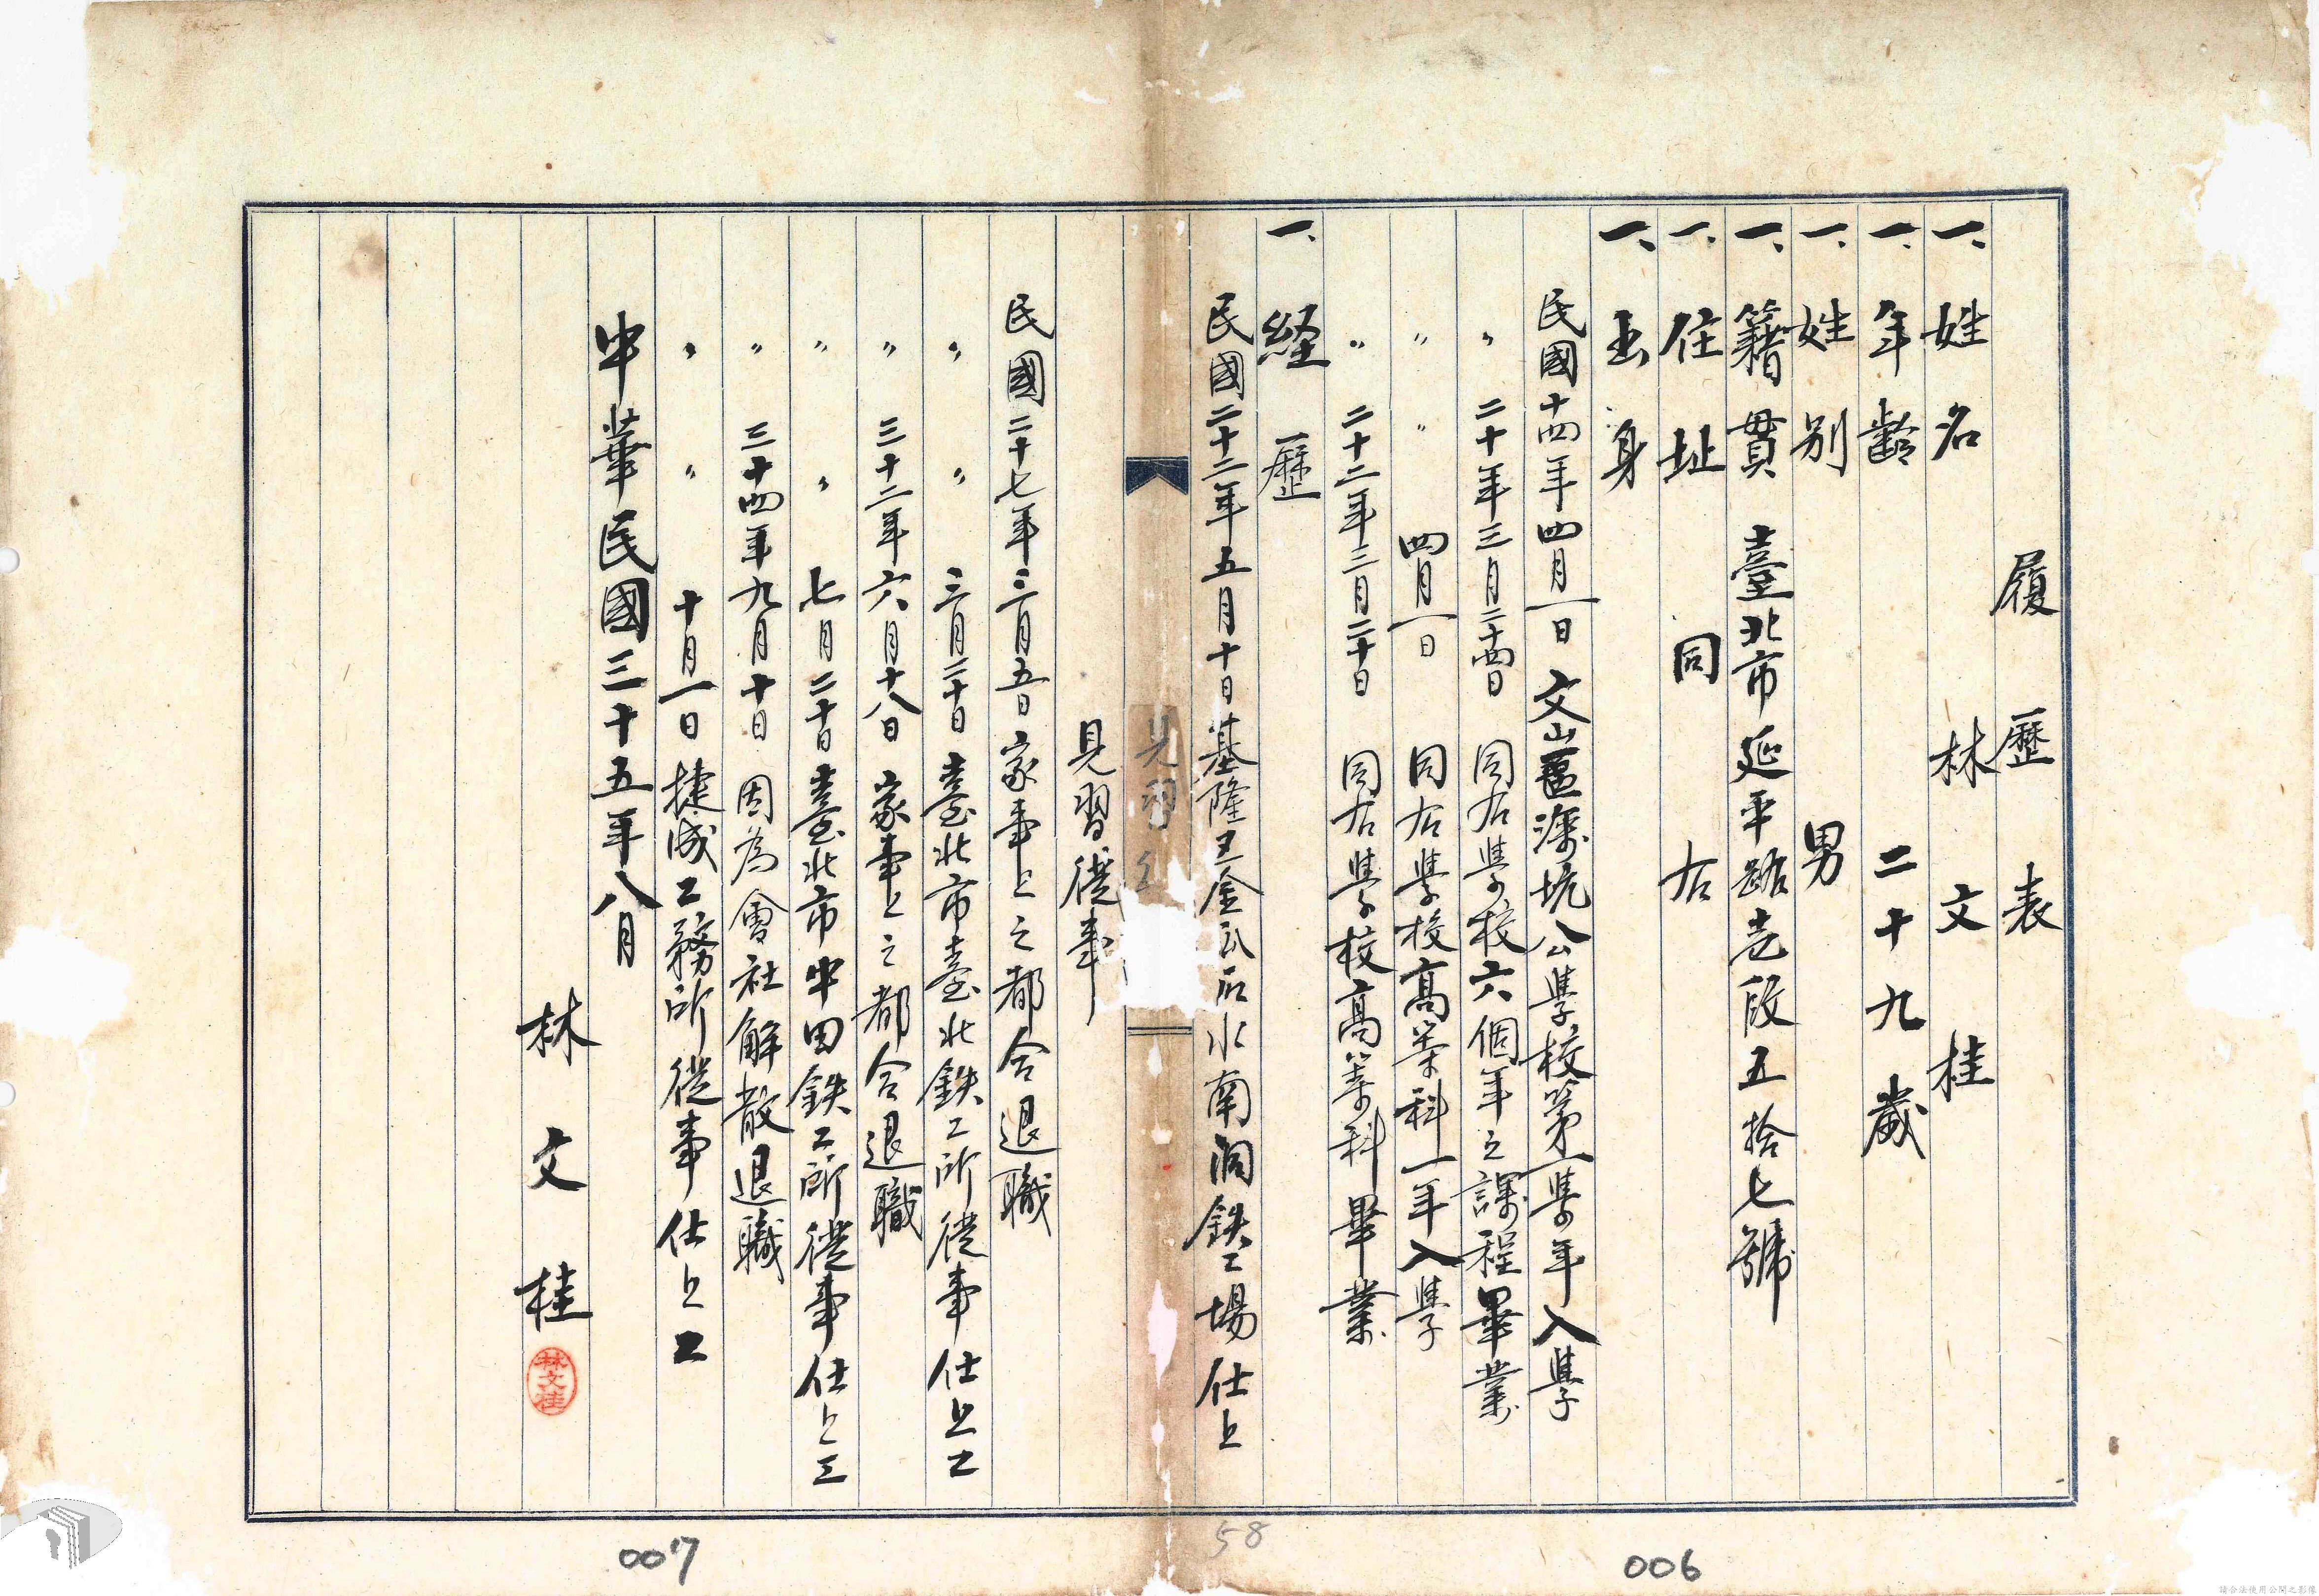 履歷表
一、姓名 林文桂
一、年齡 二十九歲
一、姓別 男
一、籍貫 臺北市延平路壱段五拾七號
一、住址 同右
一、出身
民國十四年四月一日 文山區深坑公學校第一學年入學
〃 二十年三月二十四日 同右學校六個年之課程畢業
〃 〃 四月一日 同右學校高等科一年入學
〃 二十二年三月二十日 同右學校高等科畢業
一、経歷
民國二十二年五月十日基隆 金瓜石水南洞鉄工場仕上
見習
見習從事
民國二十七年三月五日 家事上之都合退職
〃 〃 三月二十日 臺北市臺北鉄工所從事仕上工
〃 三十二年六月十八日 家事上之都合退職
〃 〃 七月二十日 臺北市中田鉄工所從事仕上工
〃 三十四年九月十日 因為會社解散退職
〃 〃 十月一日 捷成工務所從事仕上工
中華民國三十五年八月
林文桂
林文桂
006
58
007
請合法使用公開之影像